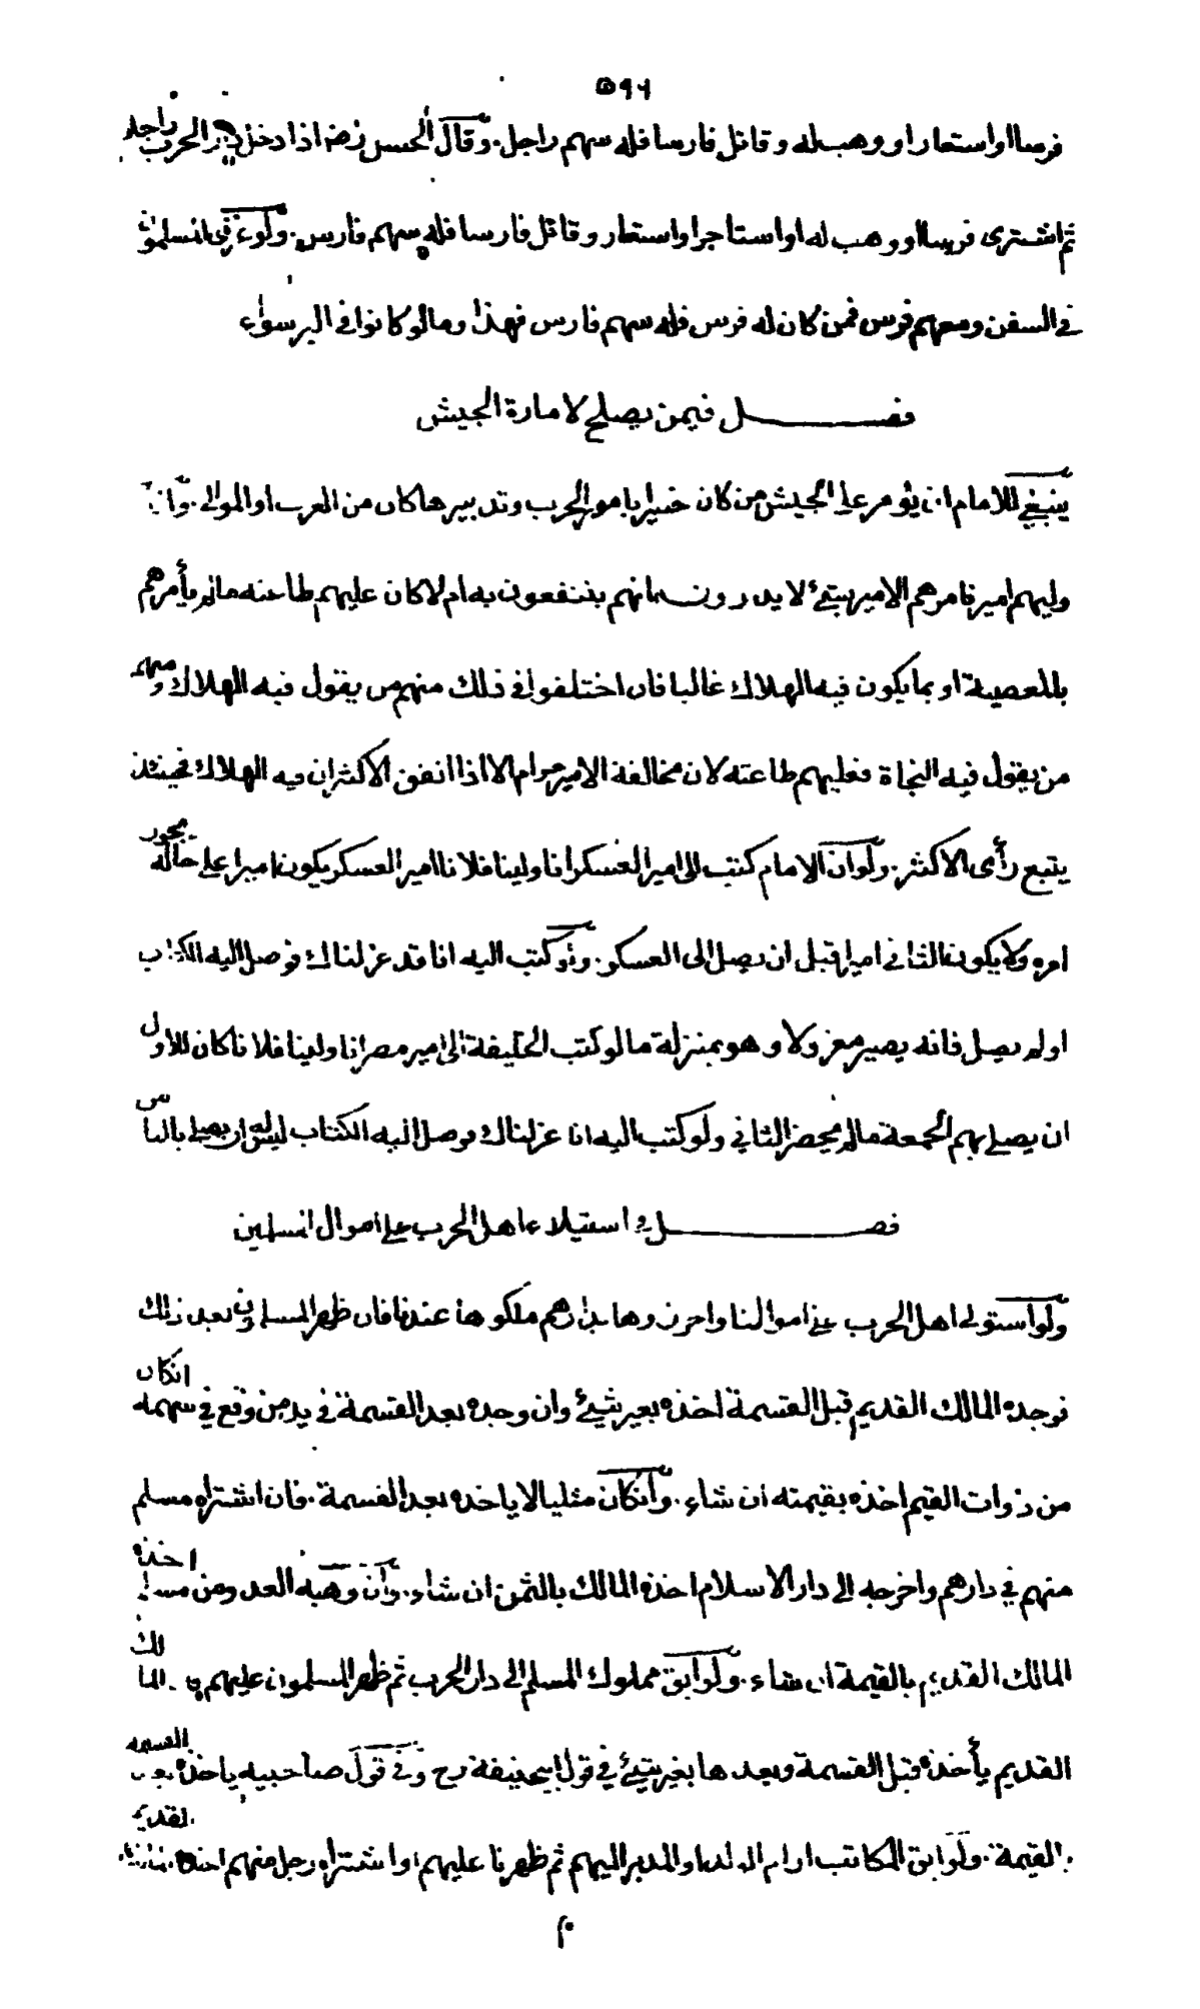 ٥٩٦
فرسا او استعار او وهب له وقاتل فارسا فله سهم راجل. وقال الحسن رضه اذا دخل دار الحرب راجلا
ثم اشترى فرسا او وهب له او استاجر او استعار وقاتل فارسا فله سهم فارس. ولو غزى المسلمون
في السفن ومعهم فرس فمن كان له فرس فله سهم فارس فهذا وما لو كانوا في البر سواء
فصل فيمن يصلح لامارة الجيش
ينبغي للامام ان يؤمر على الجيش من كان خبيرا بامور الحرب وتدبيرها كان من العرب او الموالي. وان
وليهم امير فامرهم الامير بشئ لا يدرون انهم ينتفعون به ام لا كان عليهم طاعته مالم يأمرهم
بالمعصية او بما يكون فيه الهلاك غالبا فان اختلفوا في ذلك منهم من يقول فيه الهلاك ومنهم
من يقول فيه النجاة فعليهم طاعته لان مخالفة الامير حرام الا اذا اتفق الاكثر ان فيه الهلاك فحينئذ
يتبع رأى الاكثر. ولو ان الامام كتب الى امير العسكر انا ولينا فلانا امير العسكر يكون اميرا على حاله يجوز
امره ولا يكون الثاني اميرا قبل ان يصل الى العسكر. ولو كتب اليه انا قد عزلناك فوصل اليه الكتاب
اولم يصل فانه يصير معزولا وهو بمنزلة مالو كتب الخليفة الى امير مصر انا ولينا فلانا كان للاول
ان يصلى بهم الجمعة مالم يحضر الثاني ولو كتب اليه انا عزلناك فوصل اليه الكتاب ليس له ان يصلى بالناس
فصل في استيلاء اهل الحرب على اموال المسلمين
ولو استولى اهل الحرب على اموالنا واحرزوها بدارهم ملكوها عندنا فان ظهر المسلمون بعد ذلك
فوجده المالك القديم قبل القسمة اخذه بغير شئ وان وجده بعد القسمة في يد من وقع في سهمه انكان
من ذوات القيم اخذه بقيمته ان شاء. وانكان مثليا لا ياخذه بعد القسمة. فان اشتراه مسلم
منهم في دارهم واخرجه الى دار الاسلام اخذه المالك بالثمن ان شاء. وان وهبه العدو من مسلم اخذه
المالك القديم بالقيمة ان شاء. ولو ابق مملوك المسلم الى دار الحرب ثم ظهر المسلمون عليهم المالك
القديم يأخذه قبل القسمة وبعدها بغير شئ في قول ابيحنيفة رح وفى قول صاحبيه ياخذه بعد القسمة
بالقيمة. ولو ابق المكاتب او ام الولد او المدبر اليهم ثم ظهرنا عليهم او اشتراه رجل منهم اخذه القديم
م